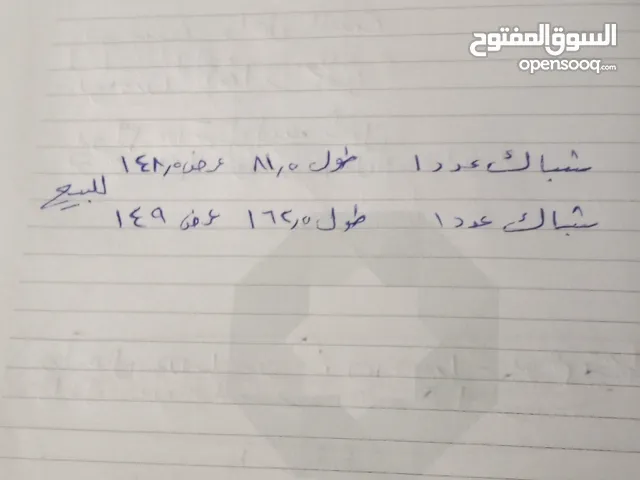 السوق المفتوح
opensooq.com
شباك عدد ١ طول ٨١,٥ عرض ١٤٨,٥
للبيع
شباك عدد ١ طول ١٦٢,٥ عرض ١٤٩